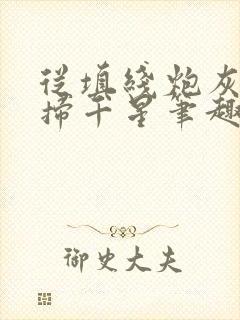 從填綫炮灰
掃干星筆趣
御史大夫